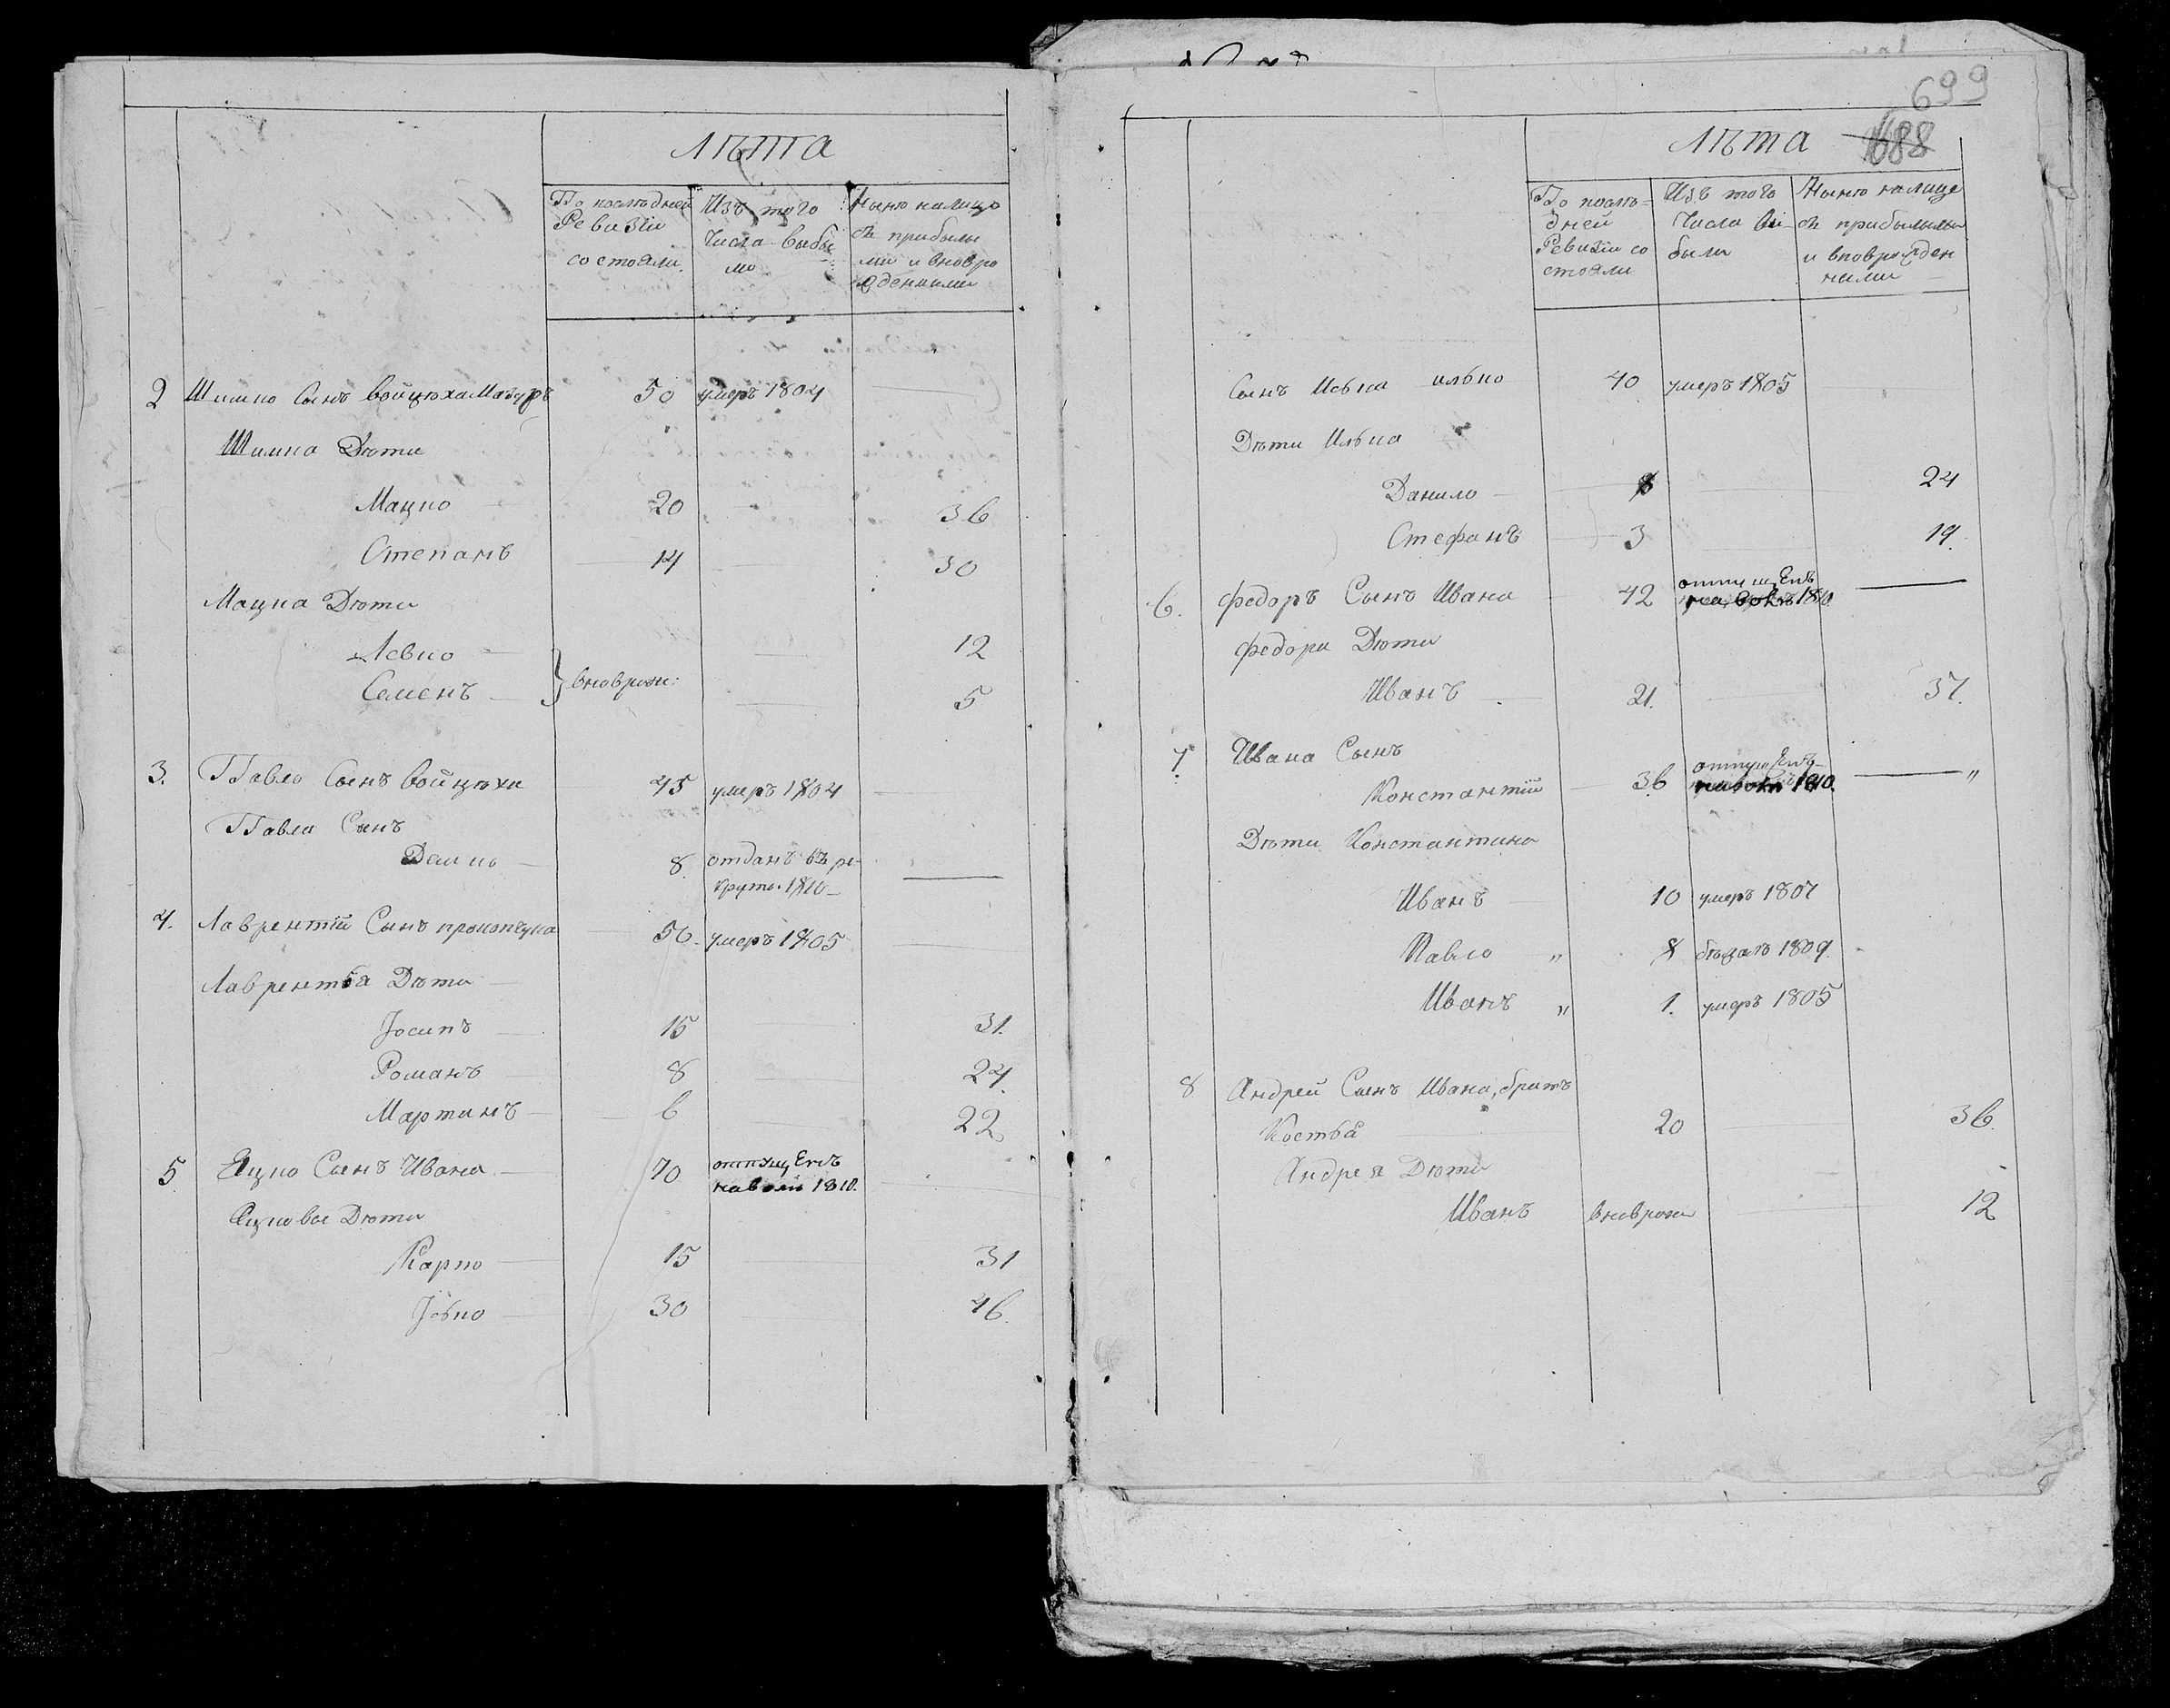 Лѣта
По послѣдней Ревизіи состояли.
Изъ того числа выбыло
Ныне налицо съ прибылыми и вновро жденными
2 Шимко Сынъ войцѣха Мазуръ 50 умеръ 1804
Шимка Дѣти
Мацко 20 36
Степанъ 14 30
Мацка Дѣти
Левко 12
Семенъ } вноврож: 5
3. Павло Сынъ войцѣха 45 умеръ 1804
Павла Сынъ
Демко 8. отданъ въ ре-
круты 1810
4. Лаврентій Сынъ прокопчука 50. умеръ 1805
Лаврентья Дѣти
Јосипъ 15 31.
Романъ 8 24.
Мартинъ 6 22
5 Яцко Сынъ Ивана 70 отпущенъ
наволю 1810.
Яцковы Дѣти
Карпо 15 31
Јовко 30 46.
699
688
Лѣта
По послѣ=
дней
Ревизіи со
стояли
Изъ того
Числа вы-
были
Ныне налице
съ прибылыми
и вноврожден
ными
Сынъ Иовка илько 40 умеръ 1805
Дѣти Илька
Данило 8 24
Стефанъ 3 19.
6. федоръ Сынъ Ивана 42 отпущенъ
на волю 1810.
федора Дѣти
Иванъ 21. 37.
7 Ивана Сынъ
Константій 36 отпущенъ
наволю 1810. "
Дѣти Константина
Иванъ 10 умеръ 1807
Павло " 8 бѣжалъ 1809.
Иванъ " 1. умеръ 1805
8 Андрей Сынъ Ивана, братъ
Костья 20 36.
Андрея Дѣти
Иванъ вноврож 12